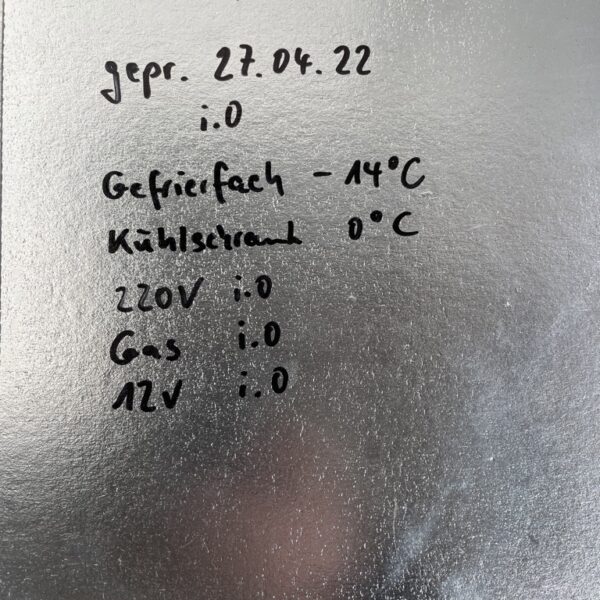 gepr. 27.04.22
i.O
Gefrierfach - 14°C
Kühlschrank 0°C
220V i.O
Gas i.O
12V i.O